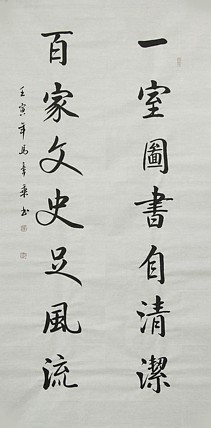 一室圖書自清潔
百家文史足風流
壬寅年馬季乘书